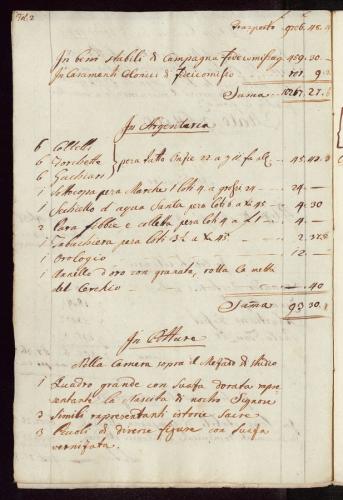 Trasporto 9706.48.
In beni stabili di Campagna fidecomissa 459.30
In Casamenti Colonici di fideicomisso 101.9
Suma 10267.27.
In Argenteria
6 Coltelli
6 Forchette pesa tutto Onzie 22 a
6 Cuchiari
1 Sottocopa pesa Marche 1 Loti 4 a 24 24
1 Sechiello d'aqua Santa pesa Loti 6 a 45 4.30
2 Para fibbie e colletta pesa Loti 4 a f 1 4
1 Tabachiera pesa Loti 3½ a 45 2.37
1 Orologio 12
1 Anello d'oro con granata, rotta la metta
del Cerchio .40
Suma 93.30
In Pitture
Nella Camera sopra il di studio
1 Quadro grande con Suasa dorata rapre
sentante la Nascita di nostro Signore
2 Simili rapresentanti istorie Sacre
3 Picoli di diverse figure con Suasa
vernisata.